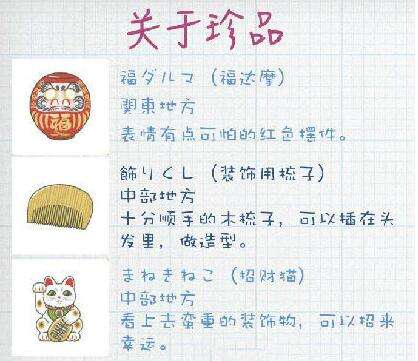 关于珍品
福ダルマ（福达摩）
関東地方
表情有点可怕的红色摆件。
飾りくし（装饰用梳子）
中部地方
十分顺手的木梳子，可以插在头
发里，做造型。
まねきねこ（招财猫）
中部地方
看上去蛮重的装饰物，可以招来
幸运。